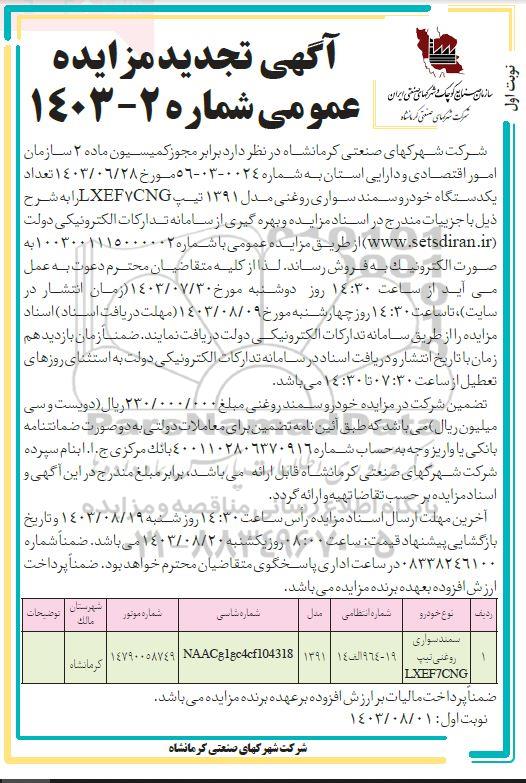 آگهی تجدید مزایده
عمومی شماره ۲-۱۴۰۳
سازمان صنایع کوچک و شهرکهای صنعتی ایران
شرکت شهرکهای صنعتی کرمانشاه
نوبت اول
شرکت شهرکهای صنعتی کرمانشاه در نظر دارد برابر مجوز کمیسیون ماده ۲ سازمان
امور اقتصادی و دارایی استان به شماره ۰۰۲۴-۰۳-۵۶ مورخ ۱۴۰۳/۰۶/۲۸ تعداد
یکدستگاه خودرو سمند سواری روغنی مدل ۱۳۹۱ تیپ LXEF۷CNG را به شرح
ذیل با جزییات مندرج در اسناد مزایده و بهره گیری از سامانه تدارکات الکترونیکی دولت
(www.setsdiran.ir) از طریق مزایده عمومی با شماره ۱۰۰۳۰۰۱۱۱۵۰۰۰۰۰۲ به
صورت الکترونیک به فروش رساند. لذا از کلیه متقاضیان محترم دعوت به عمل
می آید از ساعت ۱۴:۳۰ روز دوشنبه مورخ ۱۴۰۳/۰۷/۳۰ (زمان انتشار در
سایت)، تا ساعت ۱۴:۳۰ روز چهارشنبه مورخ ۱۴۰۳/۰۸/۰۹ (مهلت دریافت اسناد) اسناد
مزایده را از طریق سامانه تدارکات الکترونیکی دولت دریافت نمایند. ضمناً زمان بازدید هم
زمان با تاریخ انتشار و دریافت اسناد در سامانه تدارکات الکترونیکی دولت به استثنای روزهای
تعطیل از ساعت ۰۷:۳۰ تا ۱۴:۳۰ می باشد.
تضمین شرکت در مزایده خودرو سمند روغنی مبلغ ۲۳۰/۰۰۰/۰۰۰ ریال (دویست و سی
میلیون ریال) می باشد که طبق آئین نامه تضمین برای معاملات دولتی به دو صورت ضمانتنامه
بانکی یا واریز وجه به حساب شماره ۴۰۰۱۱۰۲۸۰۶۳۷۰۹۱۶ بانک مرکزی ج.ا.ا بنام سپرده
شرکت شهرکهای صنعتی کرمانشاه قابل ارائه می باشد، برابر مبلغ مندرج در این آگهی و
اسناد مزایده بر حسب تقاضا تهیه و ارائه گردد.
آخرین مهلت ارسال اسناد مزایده رأس ساعت ۱۴:۳۰ روز شنبه ۱۴۰۳/۰۸/۱۹ و تاریخ
بازگشایی پیشنهاد قیمت: ساعت ۰۸:۰۰ روز یکشنبه ۱۴۰۳/۰۸/۲۰ می باشد. ضمناً شماره
۰۸۳۳۸۲۴۶۱۰۰ در ساعت اداری پاسخگوی متقاضیان محترم خواهد بود. ضمناً پرداخت
ارزش افزوده بعهده برنده مزایده می باشد.
ردیف نوع خودرو شماره انتظامی مدل شماره شاسی شماره موتور شهرستان مالک توضیحات
۱ سمند سواری روغنی تیپ LXEF7CNG ۱۹-۹۶۴الف۱۴ ۱۳۹۱ NAACg1gc4cf104318 ۱۴۷۹۰۰۵۸۷۴۹ کرمانشاه
ضمناً پرداخت مالیات بر ارزش افزوده بر عهده برنده مزایده می باشد.
نوبت اول: ۱۴۰۳/۰۸/۰۱
شرکت شهرکهای صنعتی کرمانشاه